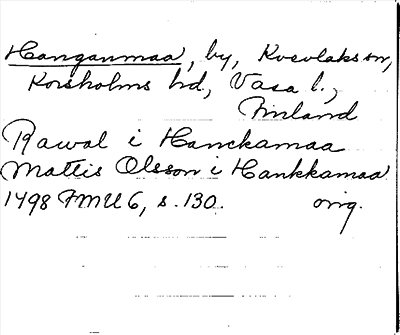 Hanganmaa, by, Kvevlaks sn,
Korsholms hd, Vasa l.,
Finland
Rawal i Hanckamaa
Mattis Olsson i Hankkamaa
1498 FMU 6, s. 130. orig.